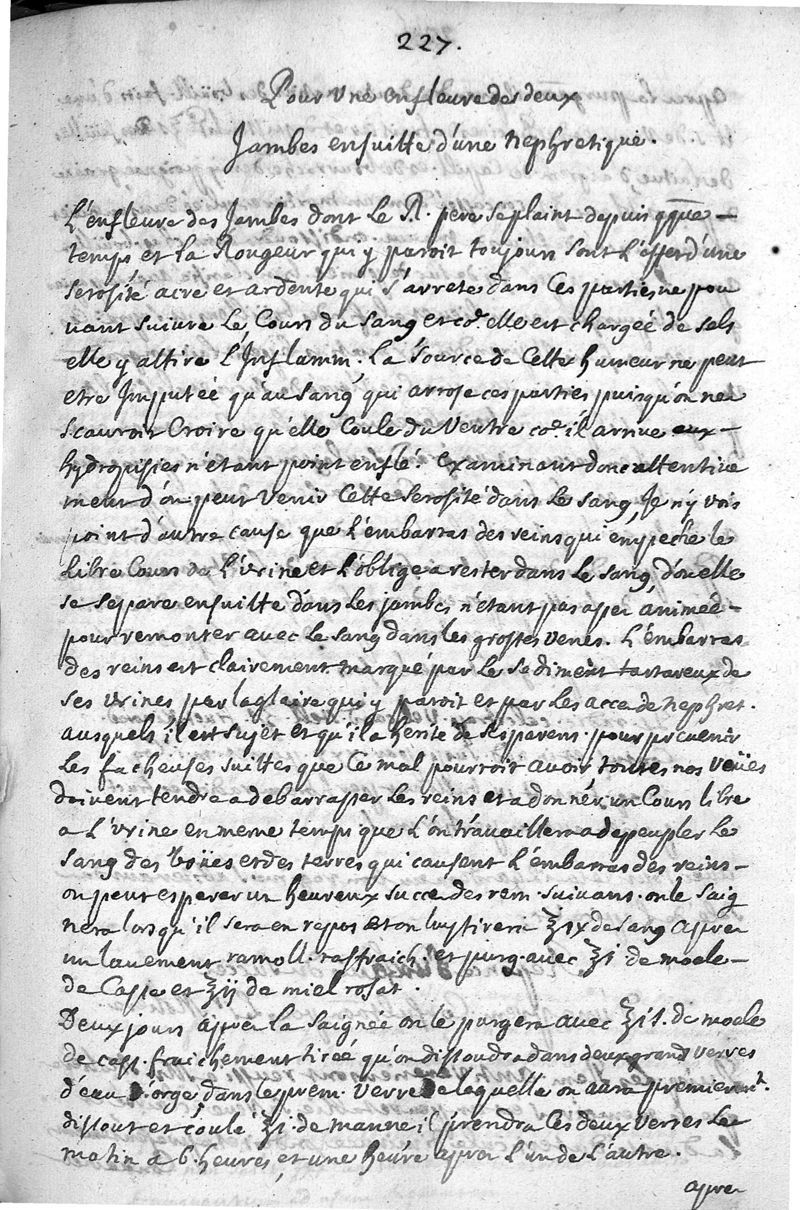 227.
Pour une enfleure des deux
Jambes ensuitte d'une nephretique.
L'enfleure des Jambes dont le R. pere se plaint depuis qque
temps et la Rougeur qui y paroit toujours sont l'effet d'une
serosité acre et ardente qui s'arrete dans ces parties ne pou
vant suivre le Cours du sang et co.e elle est chargée de sels
elle y attire l'Inflamm. la source de Cette humeur ne peut
etre Imputée qu'au sang qui arrose ces parties puisqu'on ne
scauroit Croire qu'elle Coule du Ventre co.e il arrive aux
hydropisies n'etant point enflé. examinant donc attentive
ment d'ou peut venir Cette serosité dans le sang, Je n'y vois
point d'autre cause que l'embarras des reins qui empeche le
libre Cours de l'urine et l'oblige a rester dans le sang, d'ou elle
se separe ensuitte dans les jambes n'etant pas assez animée
pour remonter avec le sang dans les grosses venes. L'embarras
des reins est clairement marqué par le sediment tartareux de
ses urines par la glaire qui y paroit et par les acces de nephret.
ausquels il est sujet et qu'il a herité de ses parens. pour prevenir
les facheuses suittes que ce mal pourroit avoir toutes nos veües
doivent tendre a debarasser les reins et a donner un Cours libre
a l'urine en meme temps que l'on travaillera a depeupler le
sang des boües et des terres qui causent l'embarras des reins
on peut esperer un heureux succe des rem. suivans. on le saig
nera lorsqu'il sera en repos et on luy tirera ℥ix de sang apres
un lavement ramoll. raffraich. et purg. avec ℥i de moele
de Casse et ℥ij de miel rosat.
Deux jours apres la saignée on le purgera avec ℥is. de moele
de cass. fraichement tirée qu'on dissoudra dans deux grands verres
d'eau d'orge, dans le prem. verre de laquelle on aura premierem.t
dissout et coulé ℥i. de manne il prendra les deux verres le
matin a 6. heures, et une heure apres l'un de l'autre.
apres